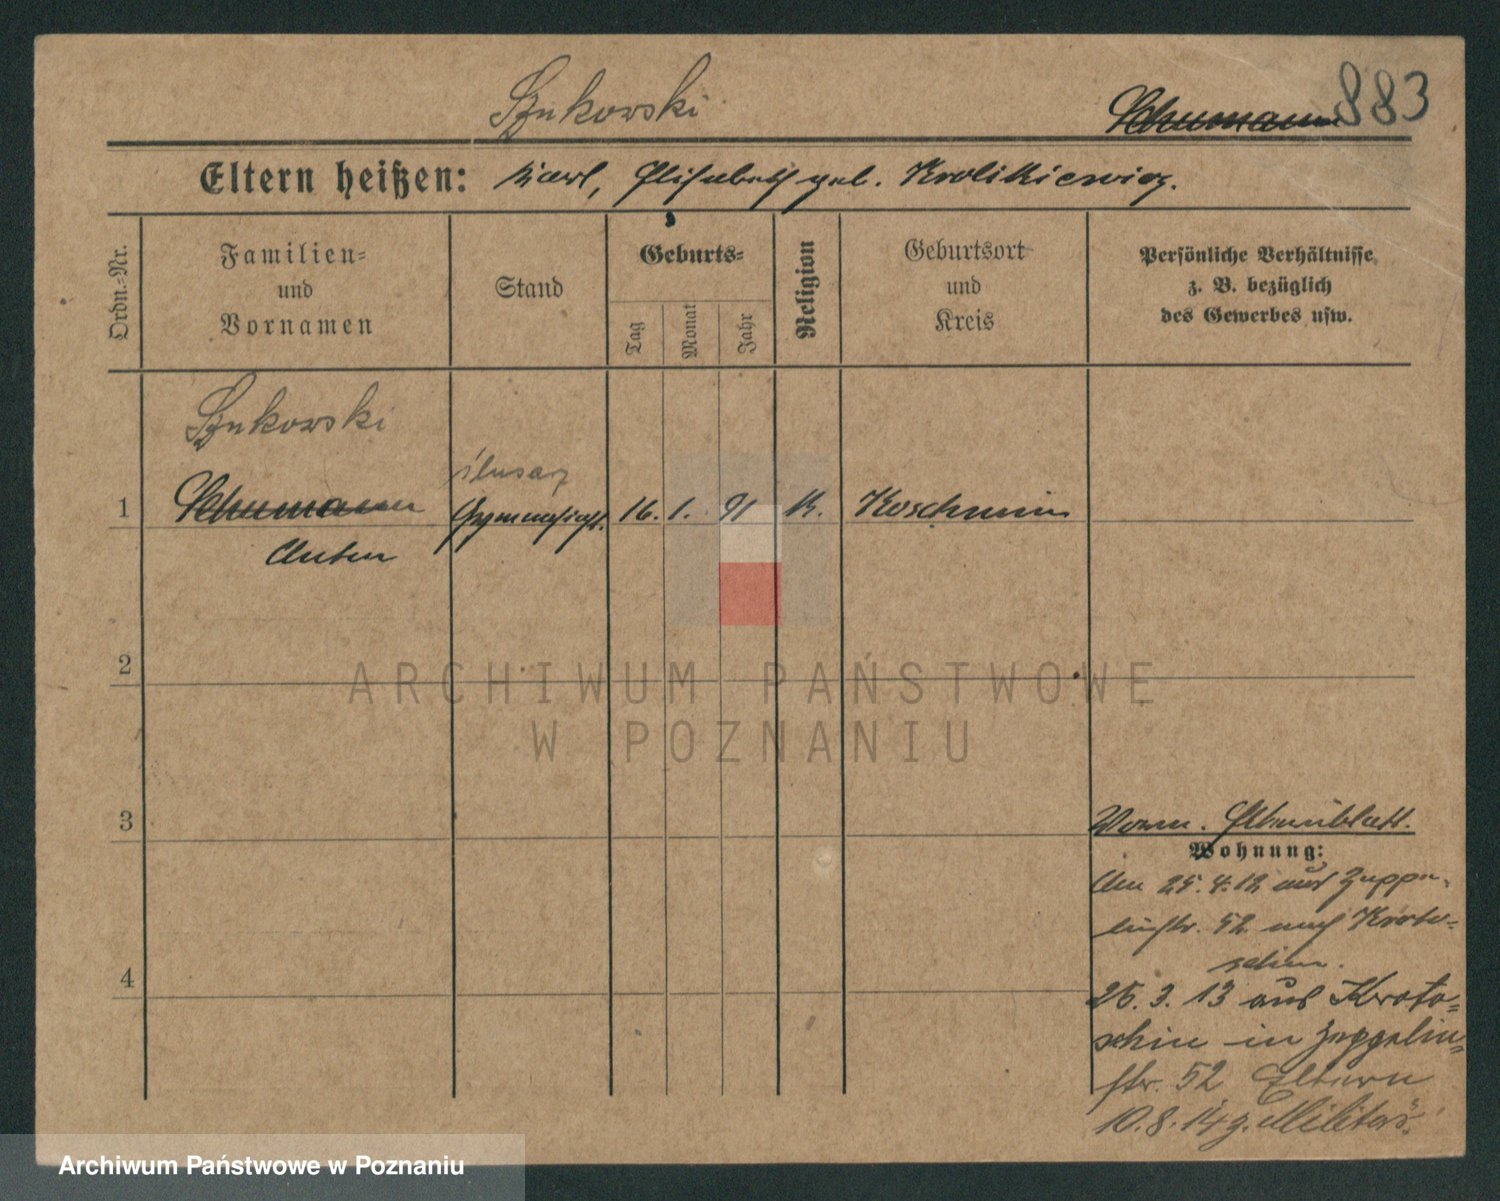 Szukowski
Schumann 883
Eltern heißen: Karl, Elisabeth geb. Krolikiewicz.
Ordn.-Nr.
Familien-
und
Vornamen
Stand
Geburts-
Tag
Monat
Jahr
Religion
Geburtsort
und
Kreis
Persönliche Verhältnisse
z. B. bezüglich
des Gewerbes usw.
Szukowski
1 Schumann Gymnasiast. 16. 1. 91 K. Koschmin
Anton
2
ARCHIWUM PAŃSTWOWE
W POZNANIU
3
Wohnung:
Am 25.4.12 aus Zeppe-
linstr. 52 nach Kroto-
schin.
4
25.3.13 aus Kroto-
schin in Zeppelin-
str. 52 Eltern
10.8.14 z. Militär.
Archiwum Państwowe w Poznaniu